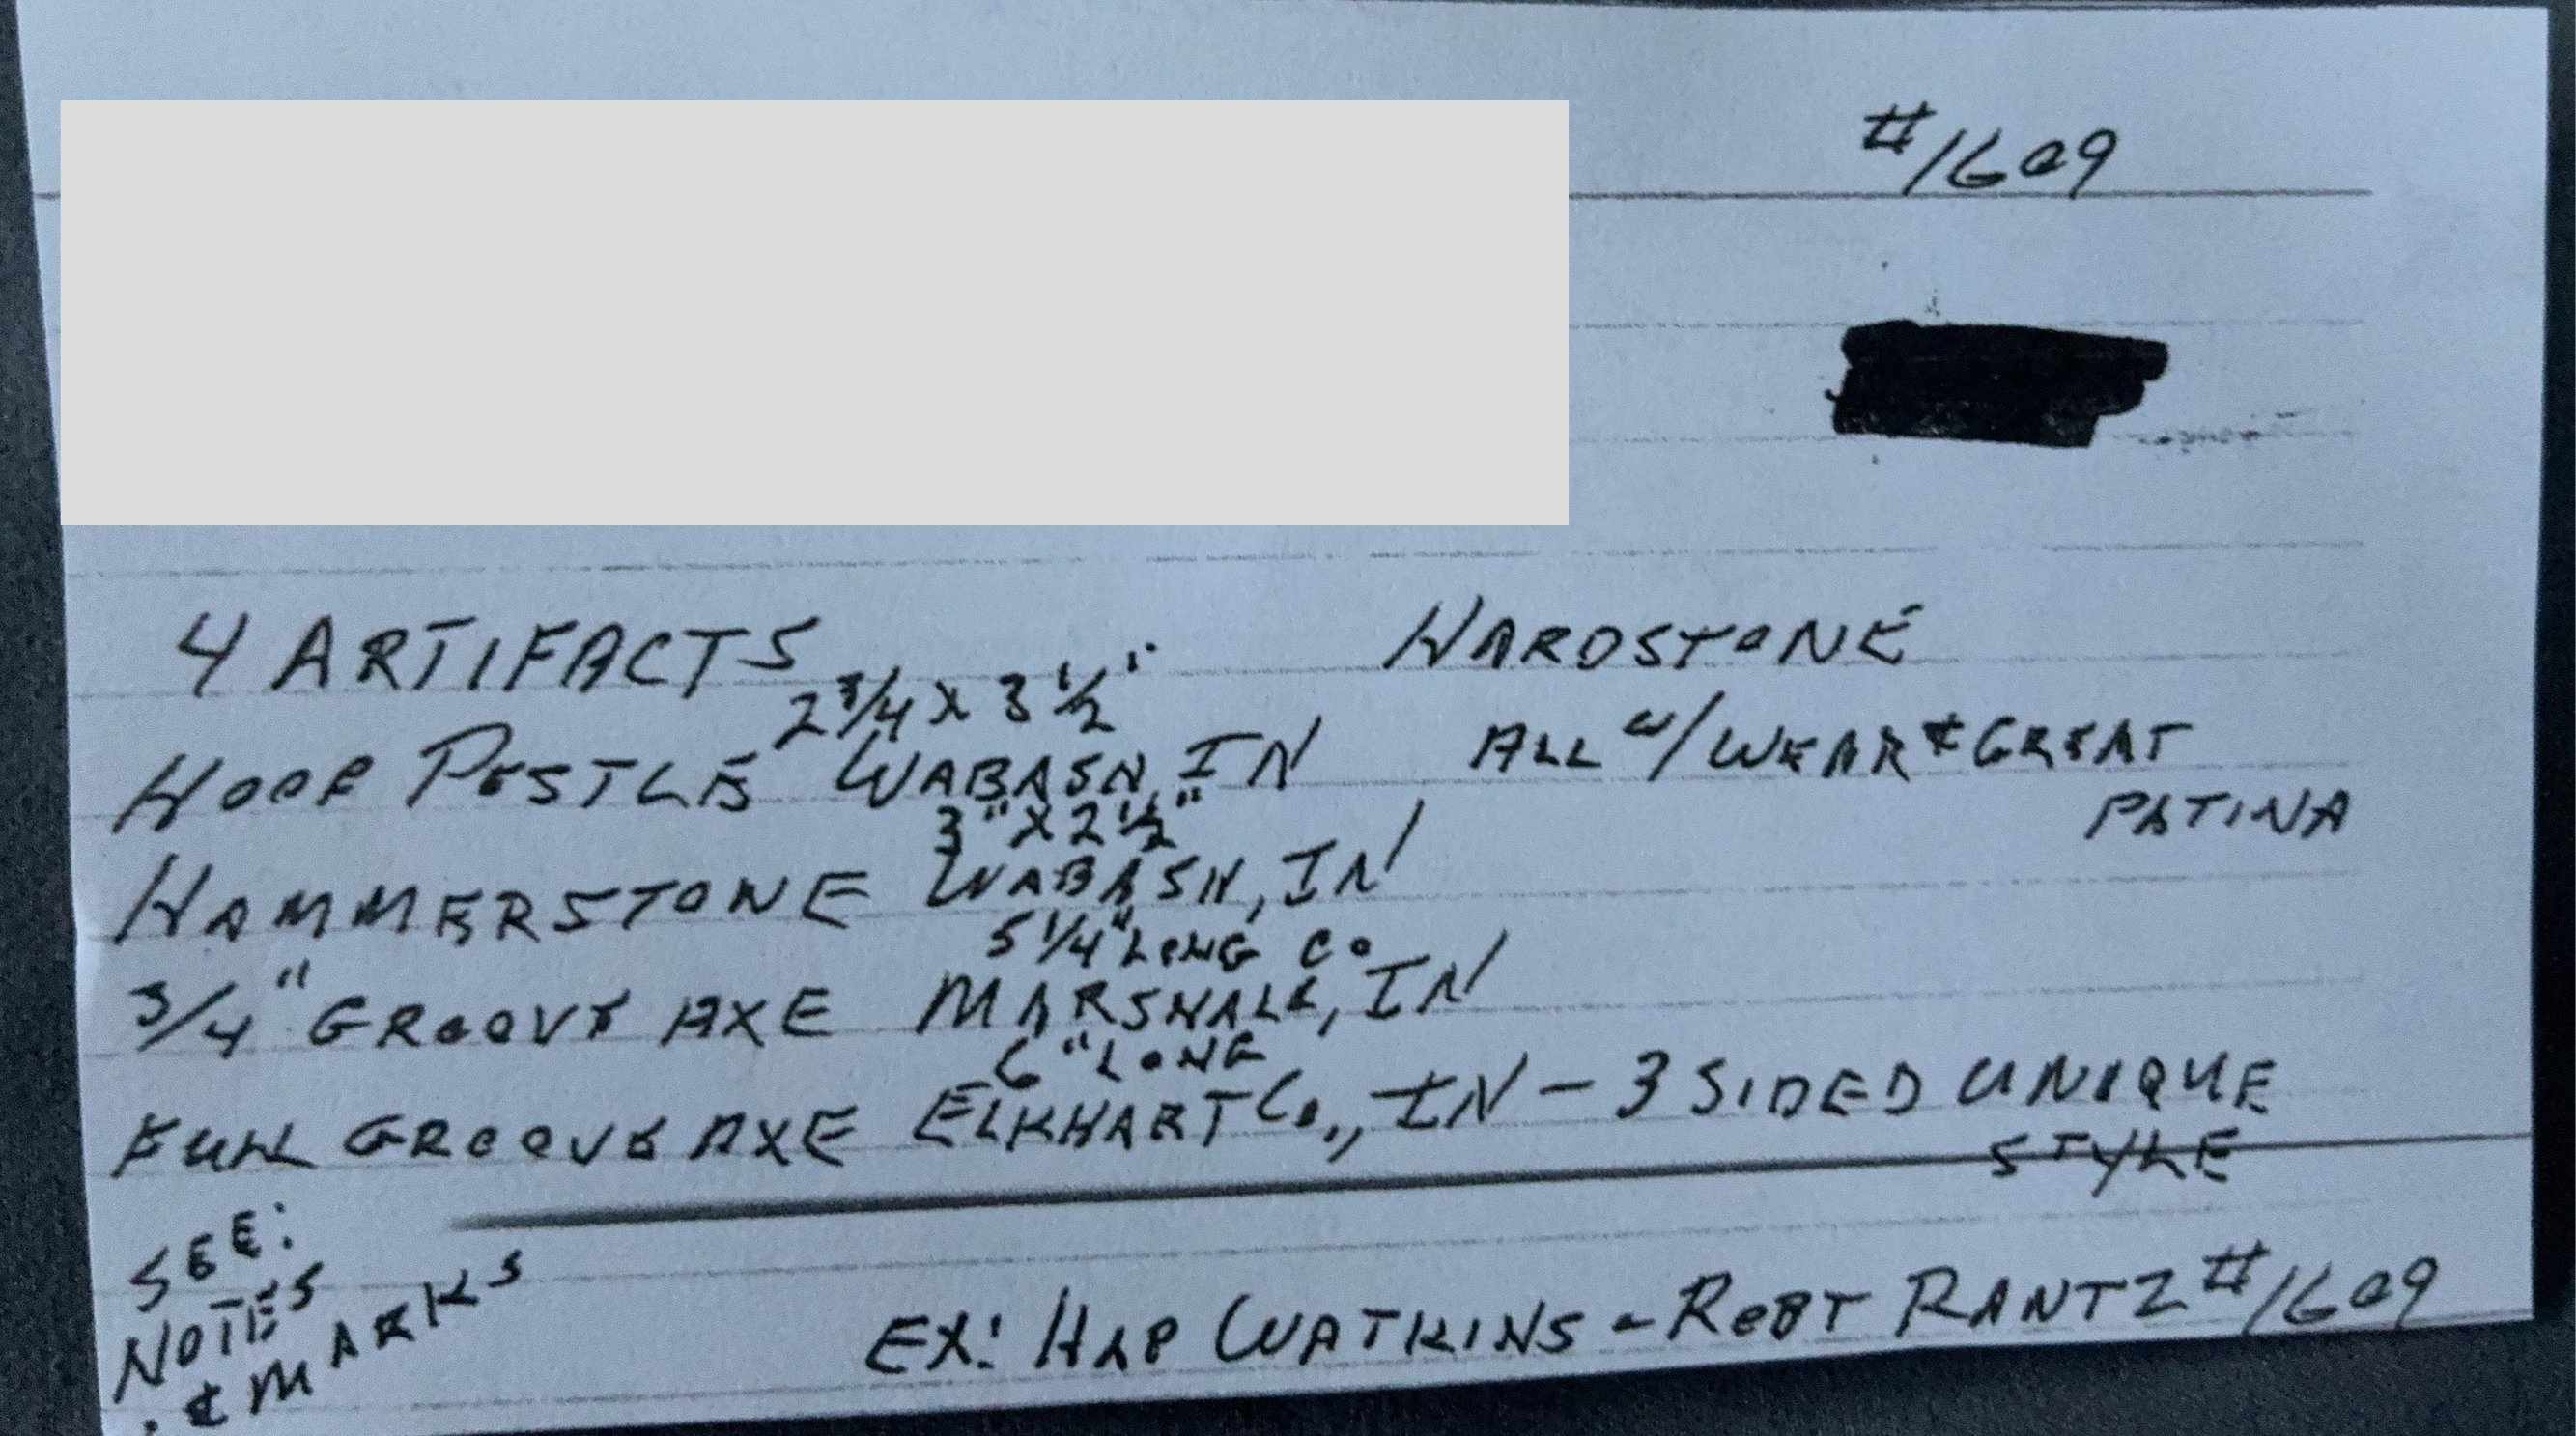 #1609
4 ARTIFACTS HARDSTONE
2 3/4 X 3 1/2"
HOOF PESTLE WABASH, IN ALL W/ WEAR & GREAT
PATINA
3" X 2 1/2"
HAMMERSTONE WABASH, IN
5 1/4" LONG CO
3/4" GROOVE AXE MARSHALL, IN
6" LONG
FULL GROOVE AXE ELKHART Co., IN - 3 SIDED UNIQUE
STYLE
SEE:
NOTES
& MARKS
EX: HAP WATKINS - ROBT RANTZ #1609